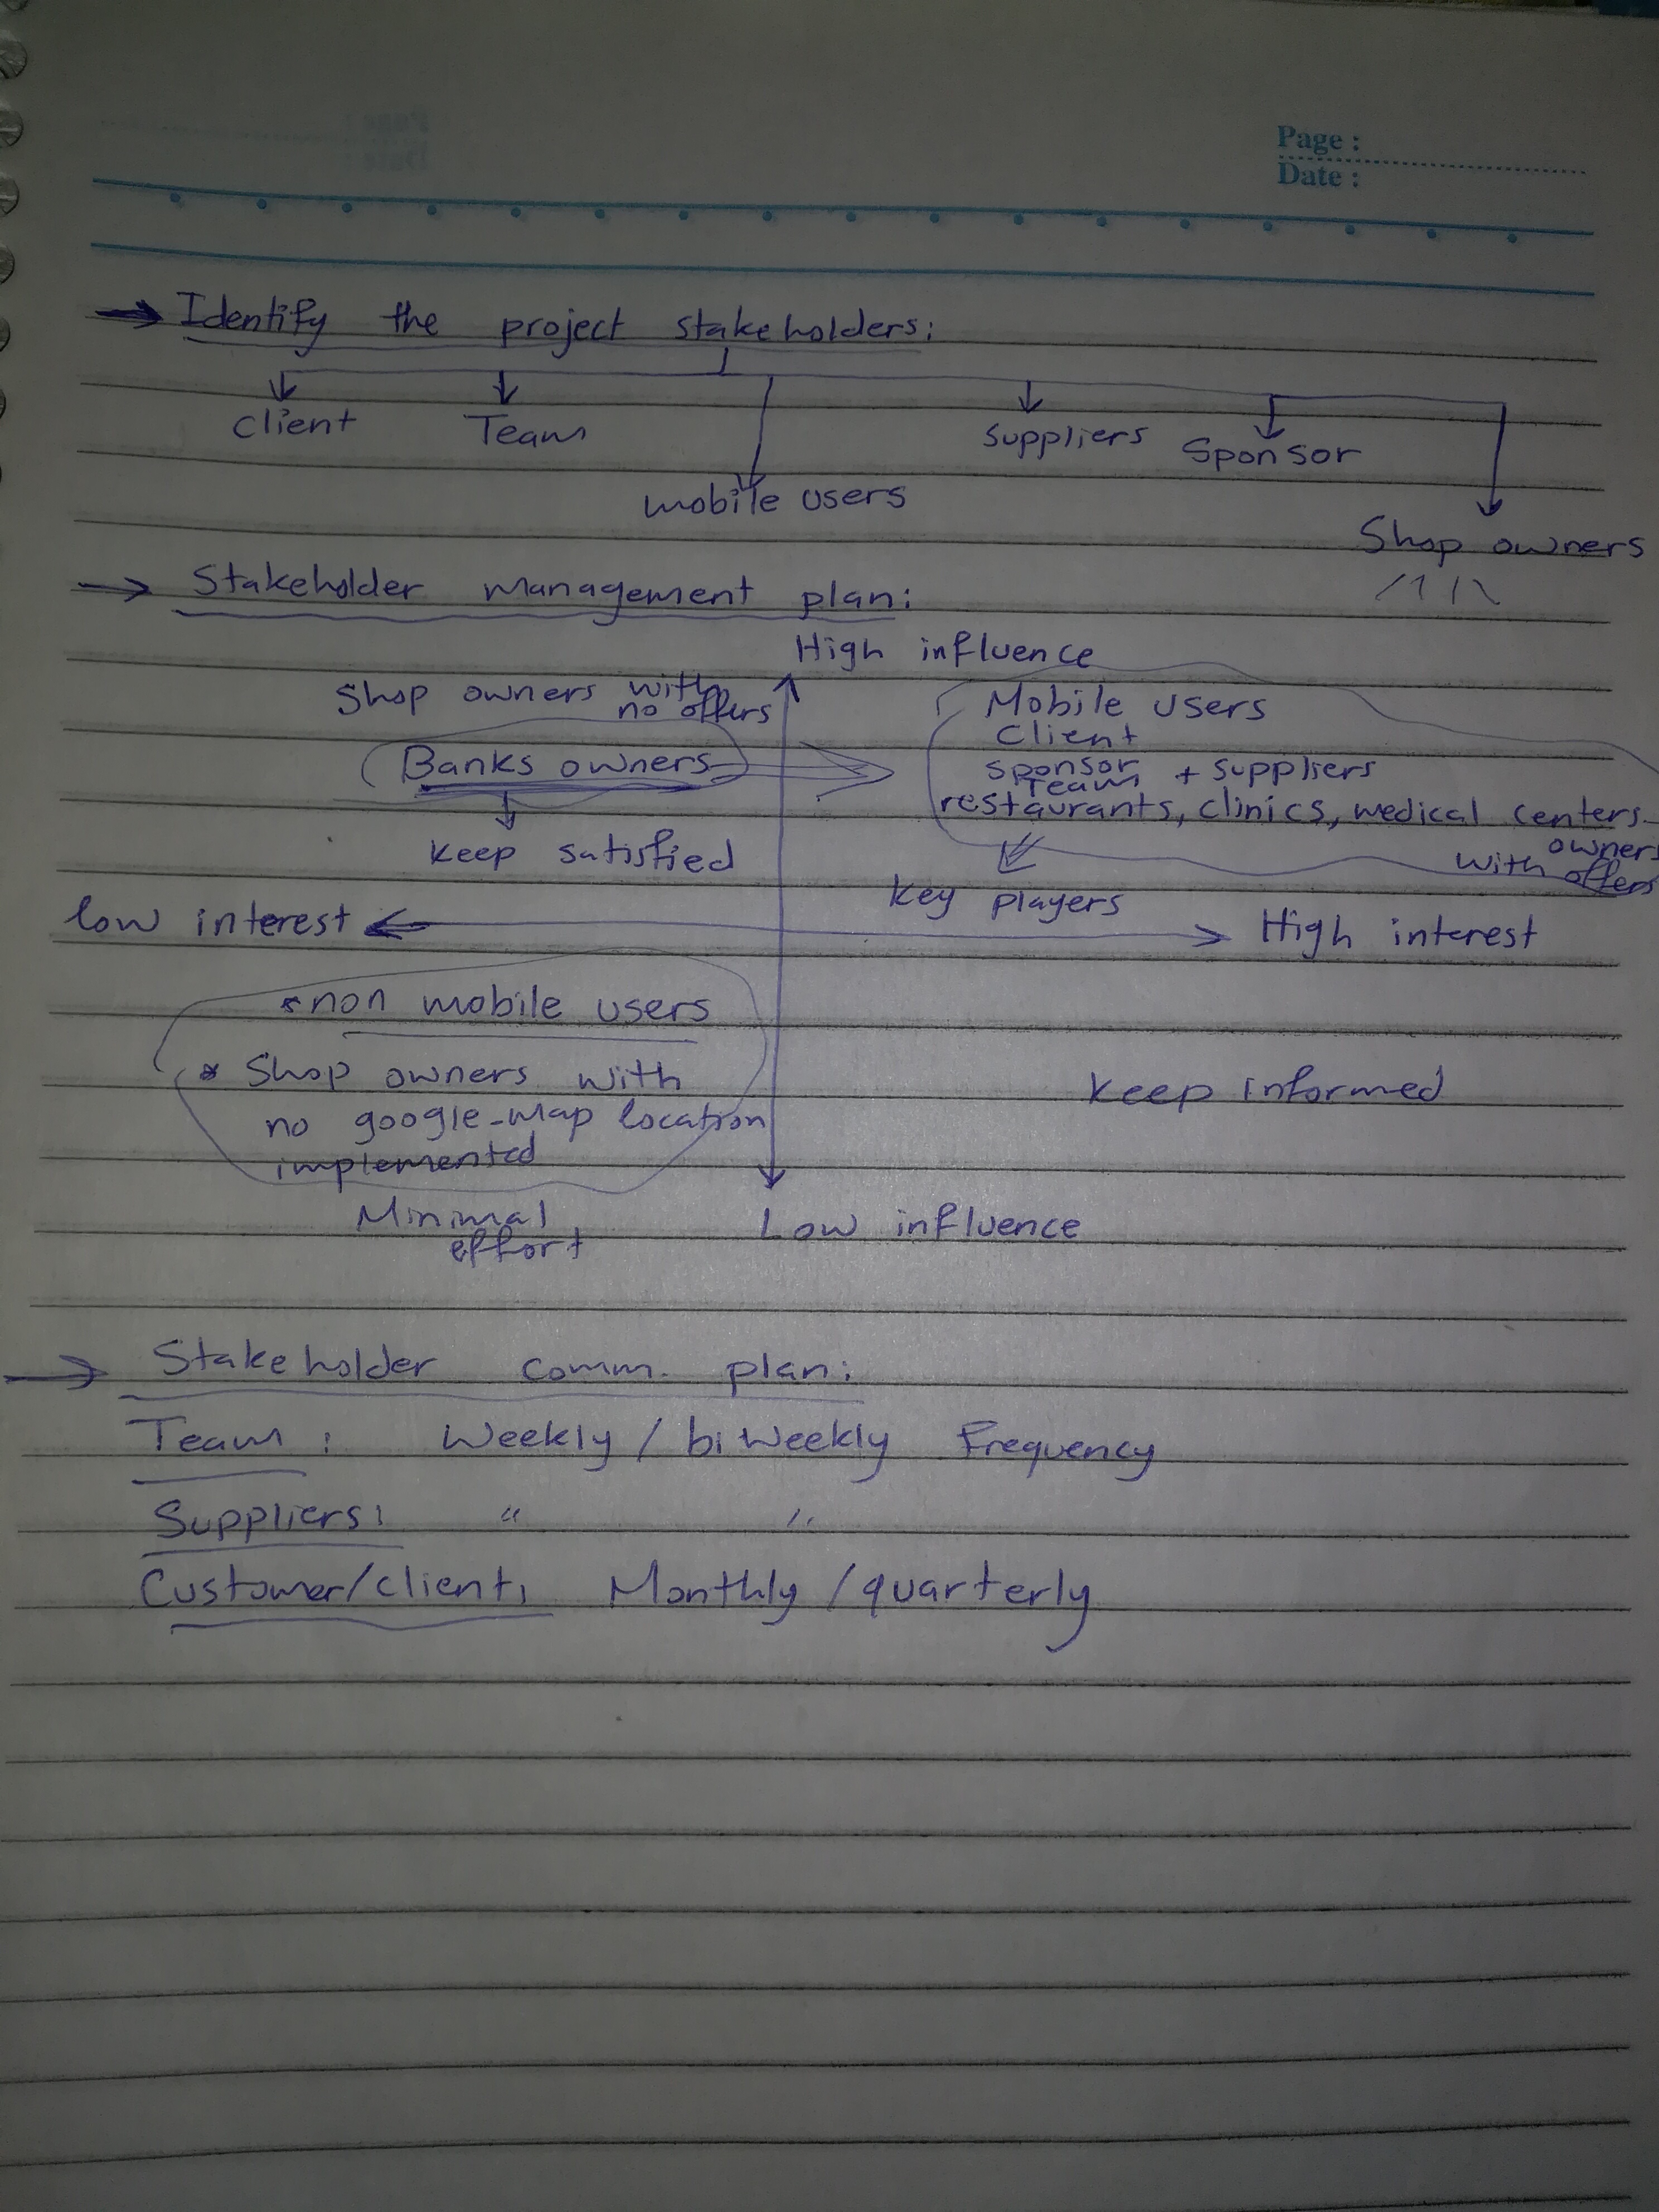 Page :
Date :
Identify the project stakeholders:
Client Team Suppliers Sponsor
mobile users
Shop owners
Stakeholder management plan:
High influence
Shop owners with
no offers
Banks owners
Keep satisfied
Mobile users
Client
Sponsor + suppliers
Team
restaurants, clinics, medical centers
owners
with offers
Key players
low interest
High interest
* non mobile users
* Shop owners with
no google-map location
implemented
Minimal
effort
Keep informed
Low influence
Stakeholder comm. plan:
Team : Weekly / biweekly Frequency
Suppliers: " "
Customer/client: Monthly / quarterly